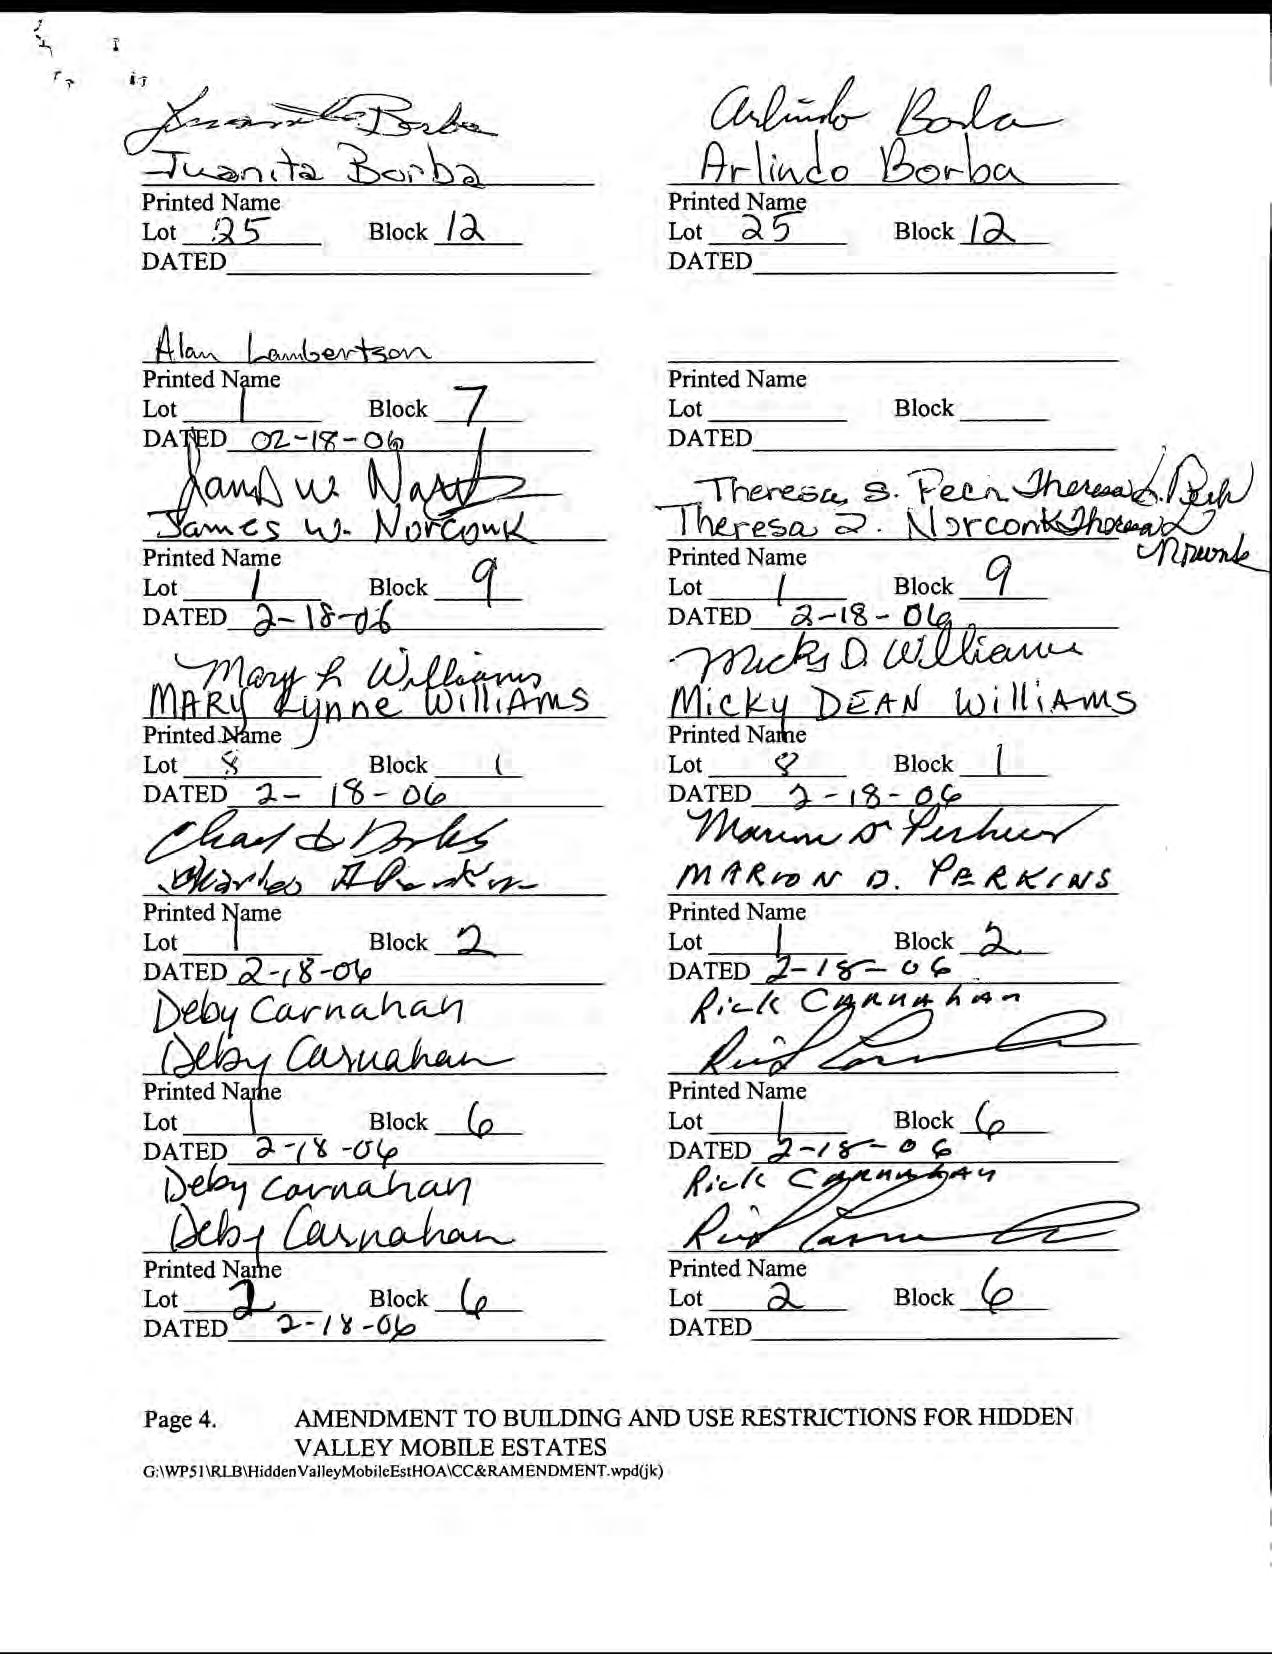 Juanita Borba Arlindo Borba
Juanita Borba Arlindo Borba
Printed Name Printed Name
Lot 25 Block 12 Lot 25 Block 12
DATED DATED
Alan Lambertson
Printed Name Printed Name
Lot 1 Block 7 Lot Block
DATED 02-18-06 DATED
James W. Theresa S. Theresa S.
James W. Norconk Theresa Norconk Theresa
Norconk
Printed Name Printed Name
Lot 1 Block 9 Lot 1 Block 9
DATED 2-18-06 DATED 2-18-06
Mary L Williams Micky D. Williams
MARY Lynne WilliAMS Micky DEAN WilliAMS
Printed Name Printed Name
Lot 8 Block 1 Lot 8 Block 1
DATED 2-18-06 DATED 2-18-06
Marion D Perkins
Charles MARION D. PERKINS
Printed Name Printed Name
Lot 1 Block 2 Lot 1 Block 2
DATED 2-18-06 DATED 2-18-06
Deby Carnahan Rick CARNAHAN
Deby Carnahan
Printed Name Printed Name
Lot 1 Block 6 Lot 1 Block 6
DATED 2-18-06 DATED 2-18-06
Deby Carnahan Rick CARNAHAN
Deby Carnahan
Printed Name Printed Name
Lot 2 Block 6 Lot 2 Block 6
DATED 2-18-06 DATED
Page 4. AMENDMENT TO BUILDING AND USE RESTRICTIONS FOR HIDDEN
VALLEY MOBILE ESTATES
G:\WP51\RLB\HiddenValleyMobileEstHOA\CC&RAMENDMENT.wpd(jk)